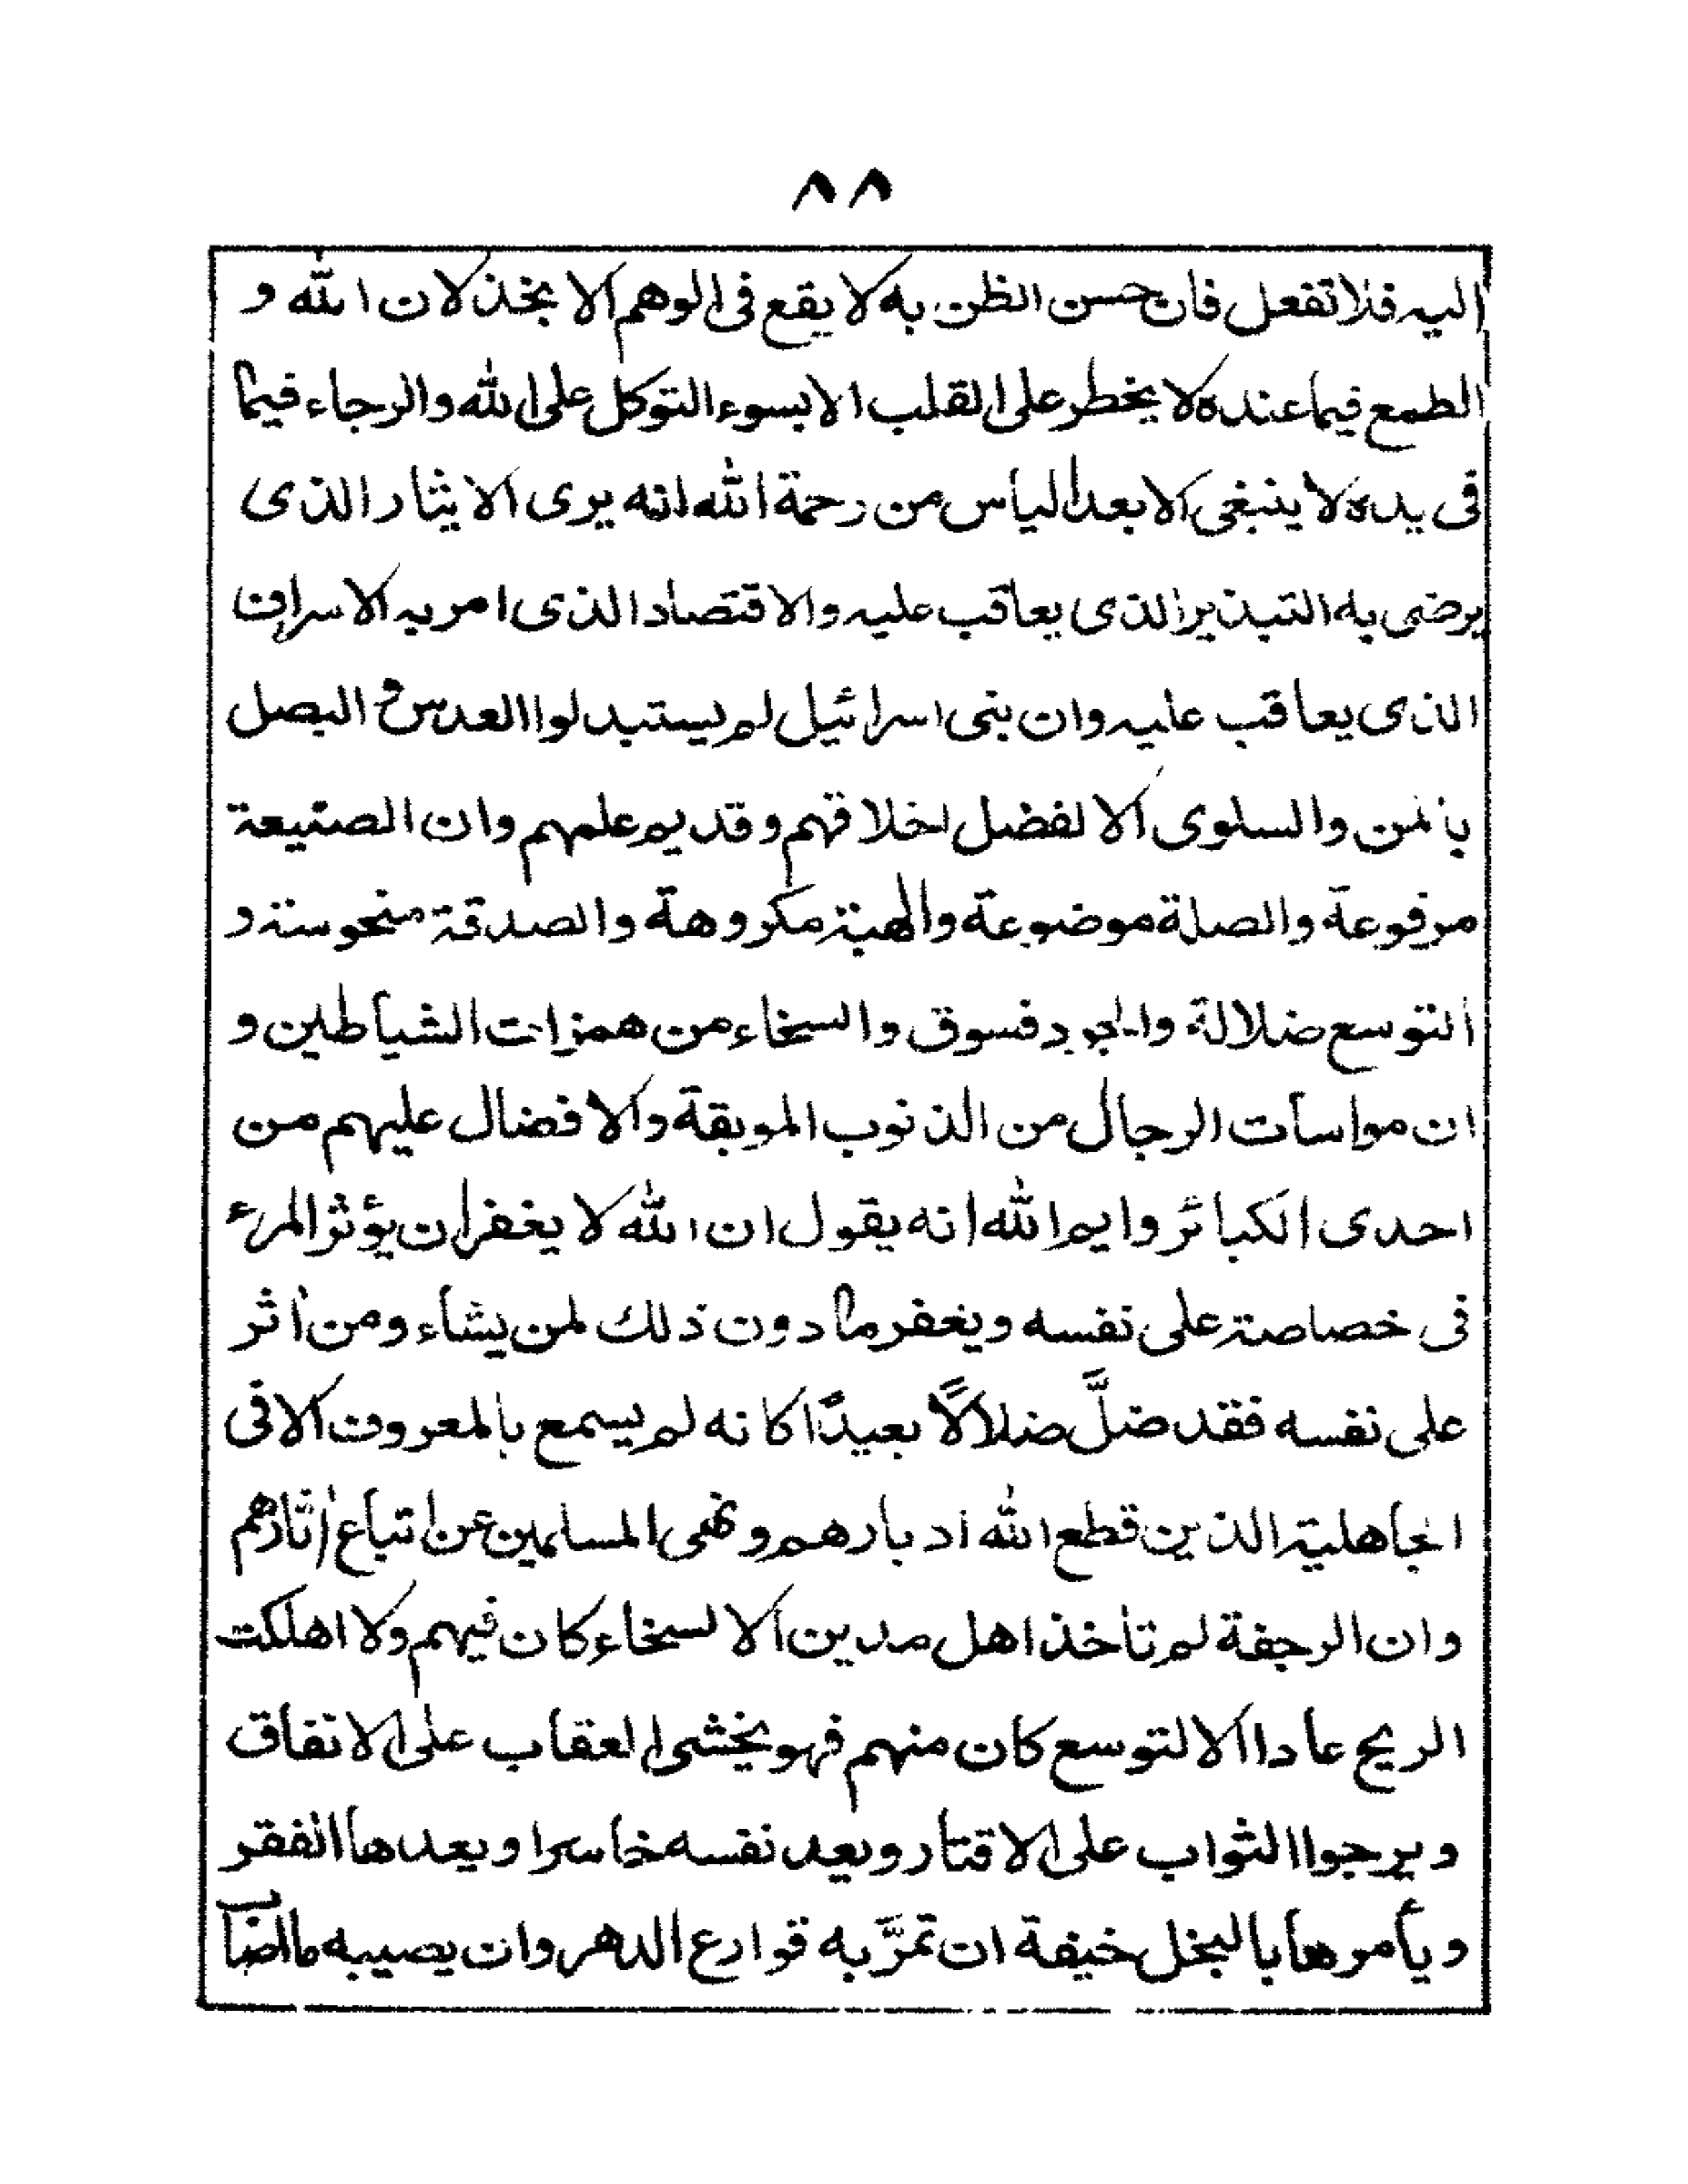 ٨٨
اليه فلا تفعل فان حسن الظن به لا يقع فى الوهم الا بخذلان الله و
الطمع فيما عنده لا يخطر على القلب الا بسوء التوكل على الله والرجاء فيما
فى يده لا ينبغى الا بعد الياس من رحمة الله انه يرى الايثار الذى
يرضى به التبذير الذى يعاقب عليه والاقتصاد الذى امر به الاسراف
الذى يعاقب عليه وان بنى اسرائيل لم يستبدلوا العدس و البصل
بالمن والسلوى الا لفضل اخلاقهم وقديم علمهم وان الصنيعة
مرفوعة والصلة موضوعة والهبة مكروهة والصدقة منحوسة و
التوسع ضلالة والجود فسوق والسخاء من همزات الشياطين و
ان مواسات الرجال من الذنوب الموبقة والافضال عليهم من
احدى الكبائر وايم الله انه يقول ان الله لا يغفر ان يؤثر المرء
فى خصاصة على نفسه ويغفر ما دون ذلك لمن يشاء ومن اثر
على نفسه فقد ضلَّ ضلالاً بعيدًا كانه لم يسمع بالمعروف الا فى
الجاهلية الذين قطع الله ادبارهم ونهى المسلمين عن اتباع اثارهم
وان الرجفة لم تاخذ اهل مدين الا لسخاء كان فيهم ولا اهلكت
الريح عادا الا لتوسع كان منهم فهو يخشى العقاب على الانفاق
ويرجوا الثواب على الاقتار ويعد نفسه خاسرا ويعدها الفقر
ويأمرها بالبخل خيفة ان تمرَّ به قوارع الدهر وان يصيبه ما اصاب